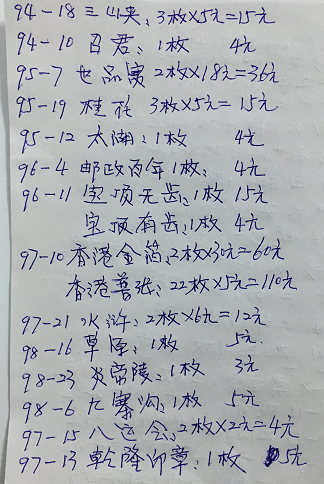 94-18 三峡, 3枚×5元=15元
94-10 昭君, 1枚 4元
95-7 世品赛 2枚×18元=36元
95-19 桂花 3枚×5元=15元
95-12 太湖, 1枚 4元
96-4 邮政百年1枚, 4元
96-11 宝顶无齿, 1枚 15元
宝顶有齿, 1枚 4元
97-10 香港金箔, 2枚×30元=60元
香港普张, 22枚×5元=110元
97-21 水浒, 2枚×6元=12元
98-16 草原, 1枚 5元
98-23 炎帝陵, 1枚 3元
98-6 九寨沟, 1枚 5元
97-15 八运会, 2枚×2元=4元
97-13 乾隆印章, 1枚 5元